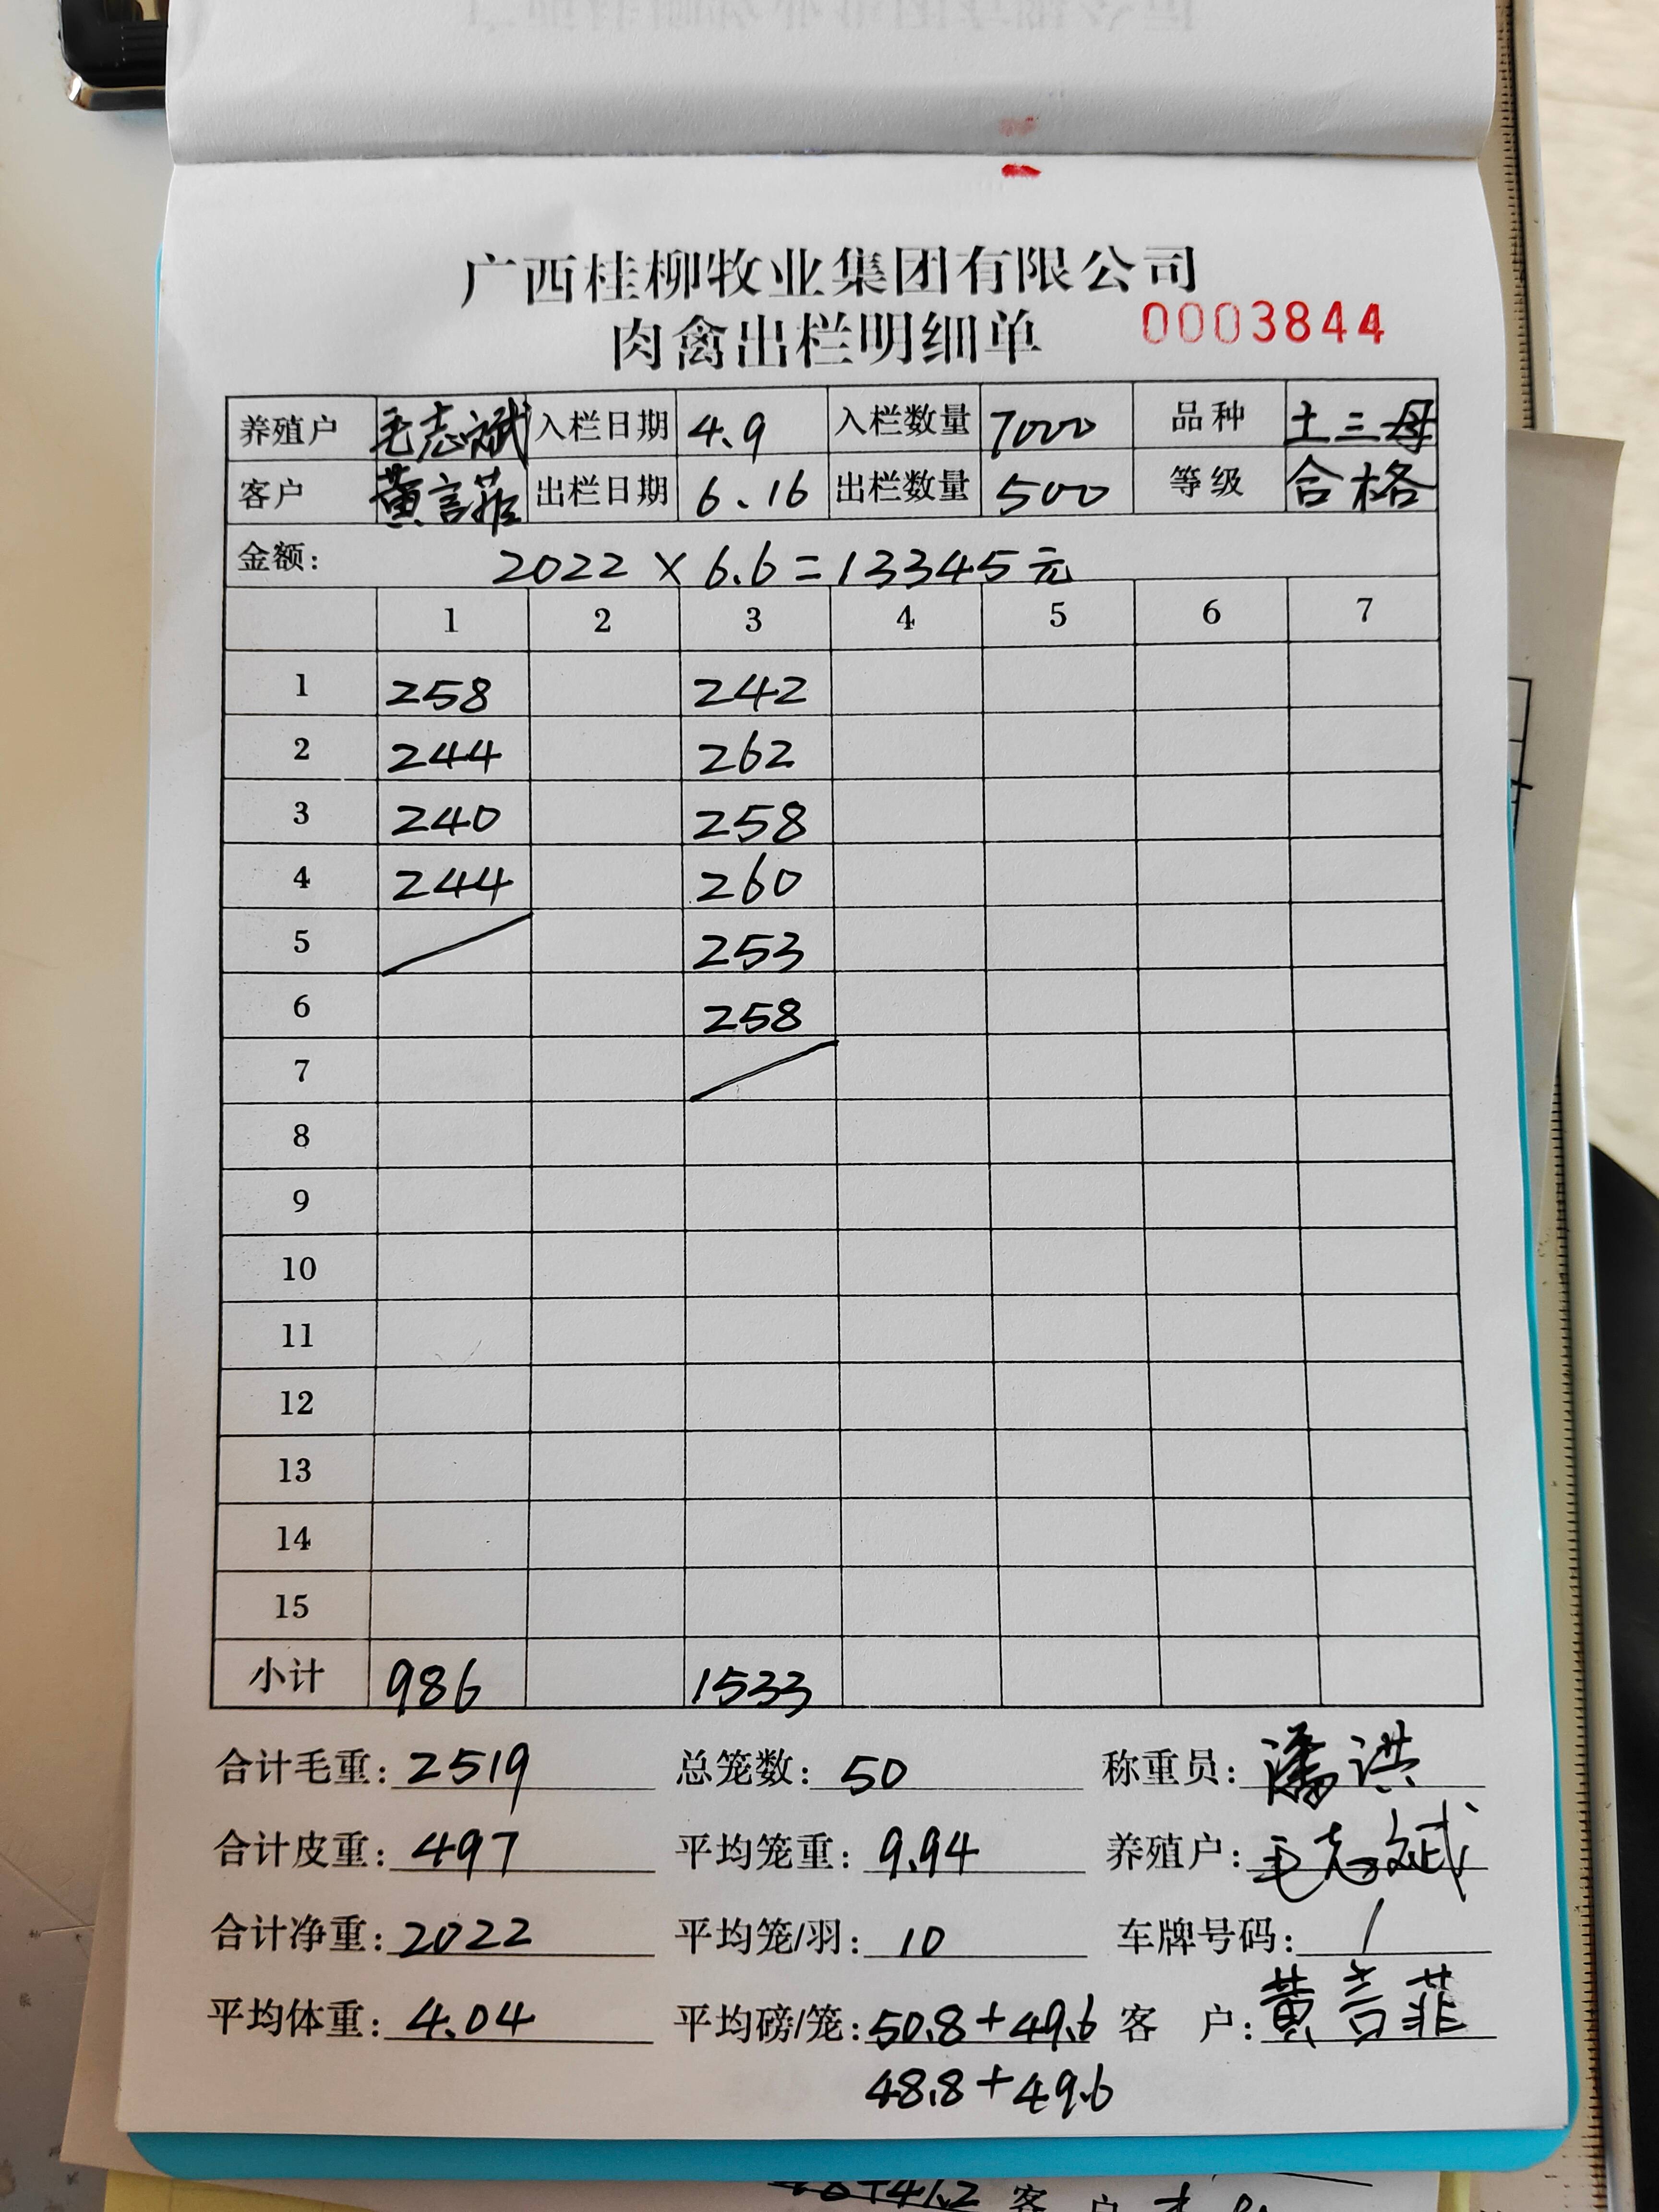 广西桂柳牧业集团有限公司
肉禽出栏明细单 0003844
养殖户 毛志斌 入栏日期 4.9 入栏数量 7000 品种 土三母
客户 黄言菲 出栏日期 6.16 出栏数量 500 等级 合格
金额: 2022 × 6.6 = 13345元
1 2 3 4 5 6 7
1 258 242
2 244 262
3 240 258
4 244 260
5 253
6 258
7
8
9
10
11
12
13
14
15
小计 986 1533
合计毛重: 2519 总笼数: 50 称重员: 潘洪
合计皮重: 497 平均笼重: 9.94 养殖户: 毛志斌
合计净重: 2022 平均笼/羽: 10 车牌号码: /
平均体重: 4.04 平均磅/笼: 50.8+49.6 客户: 黄言菲
48.8+49.6
+41.2 客户